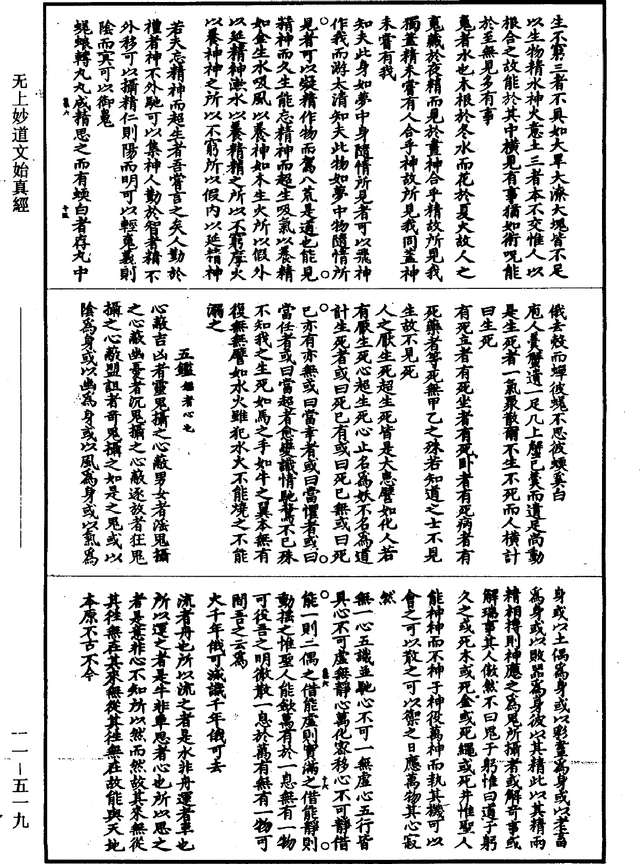 无上妙道文始真經
一一—五一九
生不窮三者不具如大旱大潦大塊皆不足
以生物精水神火意土三者本不交惟人以
根合之故能於其中橫見有事猶如術呪能
於至無見多有事
䰟者木也木根於冬水而花於夏火故人之
䰟藏於夜精而見於晝神合乎精故所見我
獨蓋精未嘗有人合乎神故所見我同蓋神
未嘗有我
知夫此身如夢中身隨情所見者可以飛神
作我而游太清知夫此物如夢中物隨情所
見者可以凝精作物而駕八荒是道也能見
精神而久生能忘精神而超生吸氣以養精
如金生水吸風以養神如木生火所以假外
以延精神漱水以養精精之所以不窮摩火
以養神神之所以不窮所以假内以延精神
若夫忘精神而超生者吾嘗言之矣人勤於
禮者神不外馳可以集神人勤於智者精不
外移可以攝精仁則陽而明可以輕䰟義則
陰而冥可以御魄
蜣蜋轉丸丸成精思之而有蝡白者存丸中
俄去殼而蟬彼蜣不思彼蝡奚白
庖人羹蟹遺一足几上蟹已羹而遺足尚動
是生死者一氣聚散爾不生不死而人橫計
曰生死
有死立者有死坐者有死卧者有死病者有
死藥者等死無甲乙之殊若知道之士不見
生故不見死
人之厭生死超生死皆是大患譬如化人若
有厭生死心超生死心止名為妖不名為道
計生死者或曰死已有或曰死已無或曰死
已亦有亦無或曰當幸者或曰當懼者或曰
當任者或曰當超者愈變識情馳騖不已殊
不知我之生死如馬之手如牛之翼本無有
復無無譬如水火雖犯水火不能燒之不能
溺之
五鑑鑑者心也
心蔽吉凶者靈鬼攝之心蔽男女者淫鬼攝
之心蔽幽憂者沉鬼攝之心蔽逐放者狂鬼
攝之心蔽盟詛者奇鬼攝之如是之鬼或以
陰為身或以幽為身或以風為身或以氣為
身或以土偶為身或以彩畫為身或以老畜
為身或以敗器為身彼以其精此以其精兩
精相搏則神應之為鬼所攝者或解奇事或
解瑞事其人傲然不曰鬼于躬惟曰道于躬
久之或死木或死金或死繩或死井惟聖人
能神神而不神于神役萬神而執其機可以
會之可以散之可以禦之日應萬物其心寂
然
無一心五識並馳心不可一無虛心五行皆
具心不可虛無靜心萬化密移心不可靜借
能一則二偶之借能虛則實滿之借能靜則
動搖之惟聖人能斂萬有於一息無有一物
可役吾之明徹散一息於萬有無有一物可
間吾之云為
火千年俄可滅識千年俄可去
流者舟也所以流之者是水非舟運者車也
所以運之者是牛非車思者心也所以思之
者是意非心不知所以然而然故其來無從
其往無在其來無從其往無在故能與天地
本原不古不今